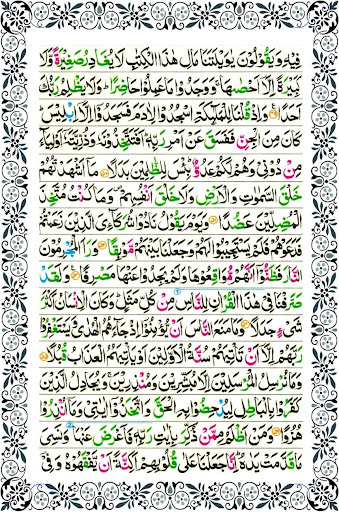 فِيْهِ وَيَقُوْلُوْنَ يٰوَيْلَتَنَا مَالِ هٰذَا الْكِتٰبِ لَا يُغَادِرُ صَغِيْرَةً وَّلَا
كَبِيْرَةً اِلَّاۤ اَحْصٰىهَا ۚ وَوَجَدُوْا مَا عَمِلُوْا حَاضِرًا ؕ وَلَا يَظْلِمُ رَبُّكَ
اَحَدًا وَاِذْ قُلْنَا لِلْمَلٰٓئِكَةِ اسْجُدُوْا لِاٰدَمَ فَسَجَدُوْۤا اِلَّاۤ اِبْلِيْسَ ؕ
كَانَ مِنَ الْجِنِّ فَفَسَقَ عَنْ اَمْرِ رَبِّهٖ ؕ اَفَتَتَّخِذُوْنَهٗ وَذُرِّيَّتَهٗۤ اَوْلِيَآءَ
مِنْ دُوْنِيْ وَهُمْ لَكُمْ عَدُوٌّ ؕ بِئْسَ لِلظّٰلِمِيْنَ بَدَلًا مَاۤ اَشْهَدْتُّهُمْ
خَلْقَ السَّمٰوٰتِ وَالْاَرْضِ وَلَا خَلْقَ اَنْفُسِهِمْ ۪ وَمَا كُنْتُ مُتَّخِذَ
الْمُضِلِّيْنَ عَضُدًا وَيَوْمَ يَقُوْلُ نَادُوْا شُرَكَآءِيَ الَّذِيْنَ زَعَمْتُمْ
فَدَعَوْهُمْ فَلَمْ يَسْتَجِيْبُوْا لَهُمْ وَجَعَلْنَا بَيْنَهُمْ مَّوْبِقًا وَرَاَ الْمُجْرِمُوْنَ
النَّارَ فَظَنُّوْۤا اَنَّهُمْ مُّوَاقِعُوْهَا وَلَمْ يَجِدُوْا عَنْهَا مَصْرِفًا وَلَقَدْ
صَرَّفْنَا فِيْ هٰذَا الْقُرْاٰنِ لِلنَّاسِ مِنْ كُلِّ مَثَلٍ ؕ وَكَانَ الْاِنْسَانُ اَكْثَرَ
شَيْءٍ جَدَلًا وَمَا مَنَعَ النَّاسَ اَنْ يُّؤْمِنُوْۤا اِذْ جَآءَهُمُ الْهُدٰى وَيَسْتَغْفِرُوْا
رَبَّهُمْ اِلَّاۤ اَنْ تَاْتِيَهُمْ سُنَّةُ الْاَوَّلِيْنَ اَوْ يَاْتِيَهُمُ الْعَذَابُ قُبُلًا
وَمَا نُرْسِلُ الْمُرْسَلِيْنَ اِلَّا مُبَشِّرِيْنَ وَمُنْذِرِيْنَ ۚ وَيُجَادِلُ الَّذِيْنَ
كَفَرُوْا بِالْبَاطِلِ لِيُدْحِضُوْا بِهِ الْحَقَّ وَاتَّخَذُوْۤا اٰيٰتِيْ وَمَاۤ اُنْذِرُوْا
هُزُوًا وَمَنْ اَظْلَمُ مِمَّنْ ذُكِّرَ بِاٰيٰتِ رَبِّهٖ فَاَعْرَضَ عَنْهَا وَنَسِيَ
مَا قَدَّمَتْ يَدٰهُ ؕ اِنَّا جَعَلْنَا عَلٰى قُلُوْبِهِمْ اَكِنَّةً اَنْ يَّفْقَهُوْهُ وَفِيْۤ